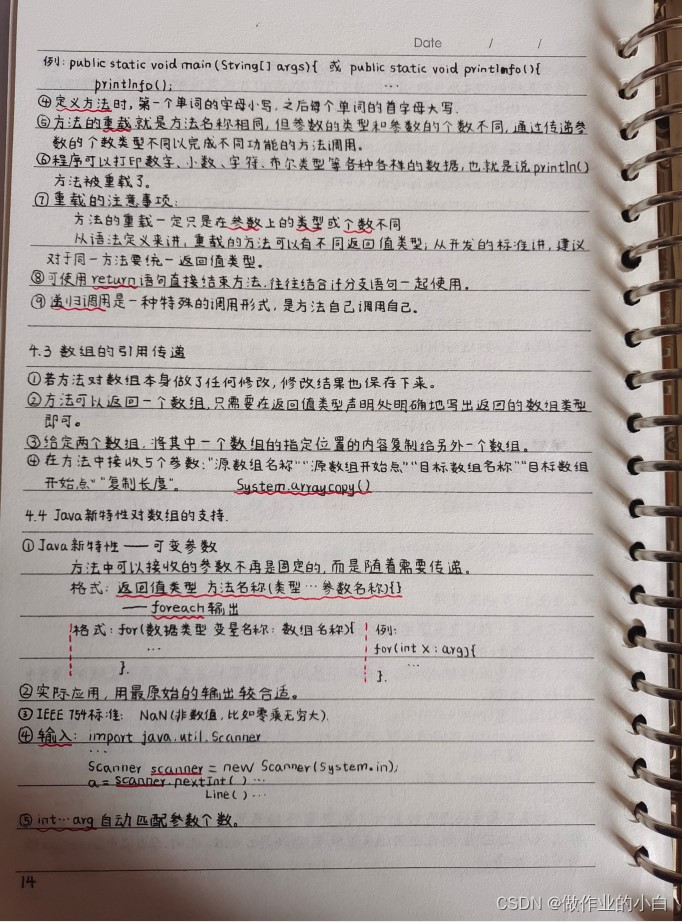 Date / /
例: public static void main(String[] args){ 或 public static void printInfo(){
printInfo(); ...
④定义方法时,第一个单词的字母小写,之后每个单词的首字母大写.
⑤方法的重载就是方法名称相同,但参数的类型和参数的个数不同,通过传递参
数的个数类型不同以完成不同功能的方法调用。
⑥程序可以打印数字、小数、字符、布尔类型等各种各样的数据,也就是说println()
方法被重载了。
⑦重载的注意事项:
方法的重载一定只是在参数上的类型或个数不同
从语法定义来讲,重载的方法可以有不同返回值类型;从开发的标准讲,建议
对于同一方法要统一返回值类型。
⑧可使用return语句直接结束方法,往往结合if分支语句一起使用。
⑨递归调用是一种特殊的调用形式,是方法自己调用自己。
4.3 数组的引用传递
①若方法对数组本身做了任何修改,修改结果也保存下来。
②方法可以返回一个数组,只需要在返回值类型声明处明确地写出返回的数组类型
即可。
③给定两个数组,将其中一个数组的指定位置的内容复制给另外一个数组。
④在方法中接收5个参数:"源数组名称""源数组开始点""目标数组名称""目标数组
开始点""复制长度"。 System.arraycopy()
4.4 Java新特性对数组的支持.
①Java新特性——可变参数
方法中可以接收的参数不再是固定的,而是随着需要传递。
格式: 返回值类型 方法名称(类型…参数名称){}
——foreach输出
格式: for(数据类型 变量名称: 数组名称){ 例:
... for(int x: arg){
}. ...
}.
②实际应用,用最原始的输出较合适。
③IEEE 754标准: NaN(非数值,比如零乘无穷大).
④输入: import java.util.Scanner
...
Scanner scanner = new Scanner(System.in);
a = scanner.nextInt() ...
Line() ...
⑤int…arg自动匹配参数个数。
14
CSDN @做作业的小白